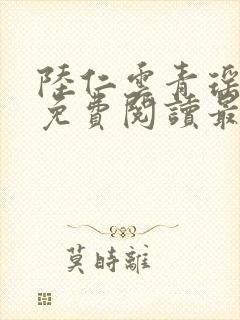 陸仁雲青瑶
免費閱讀最
莫時離